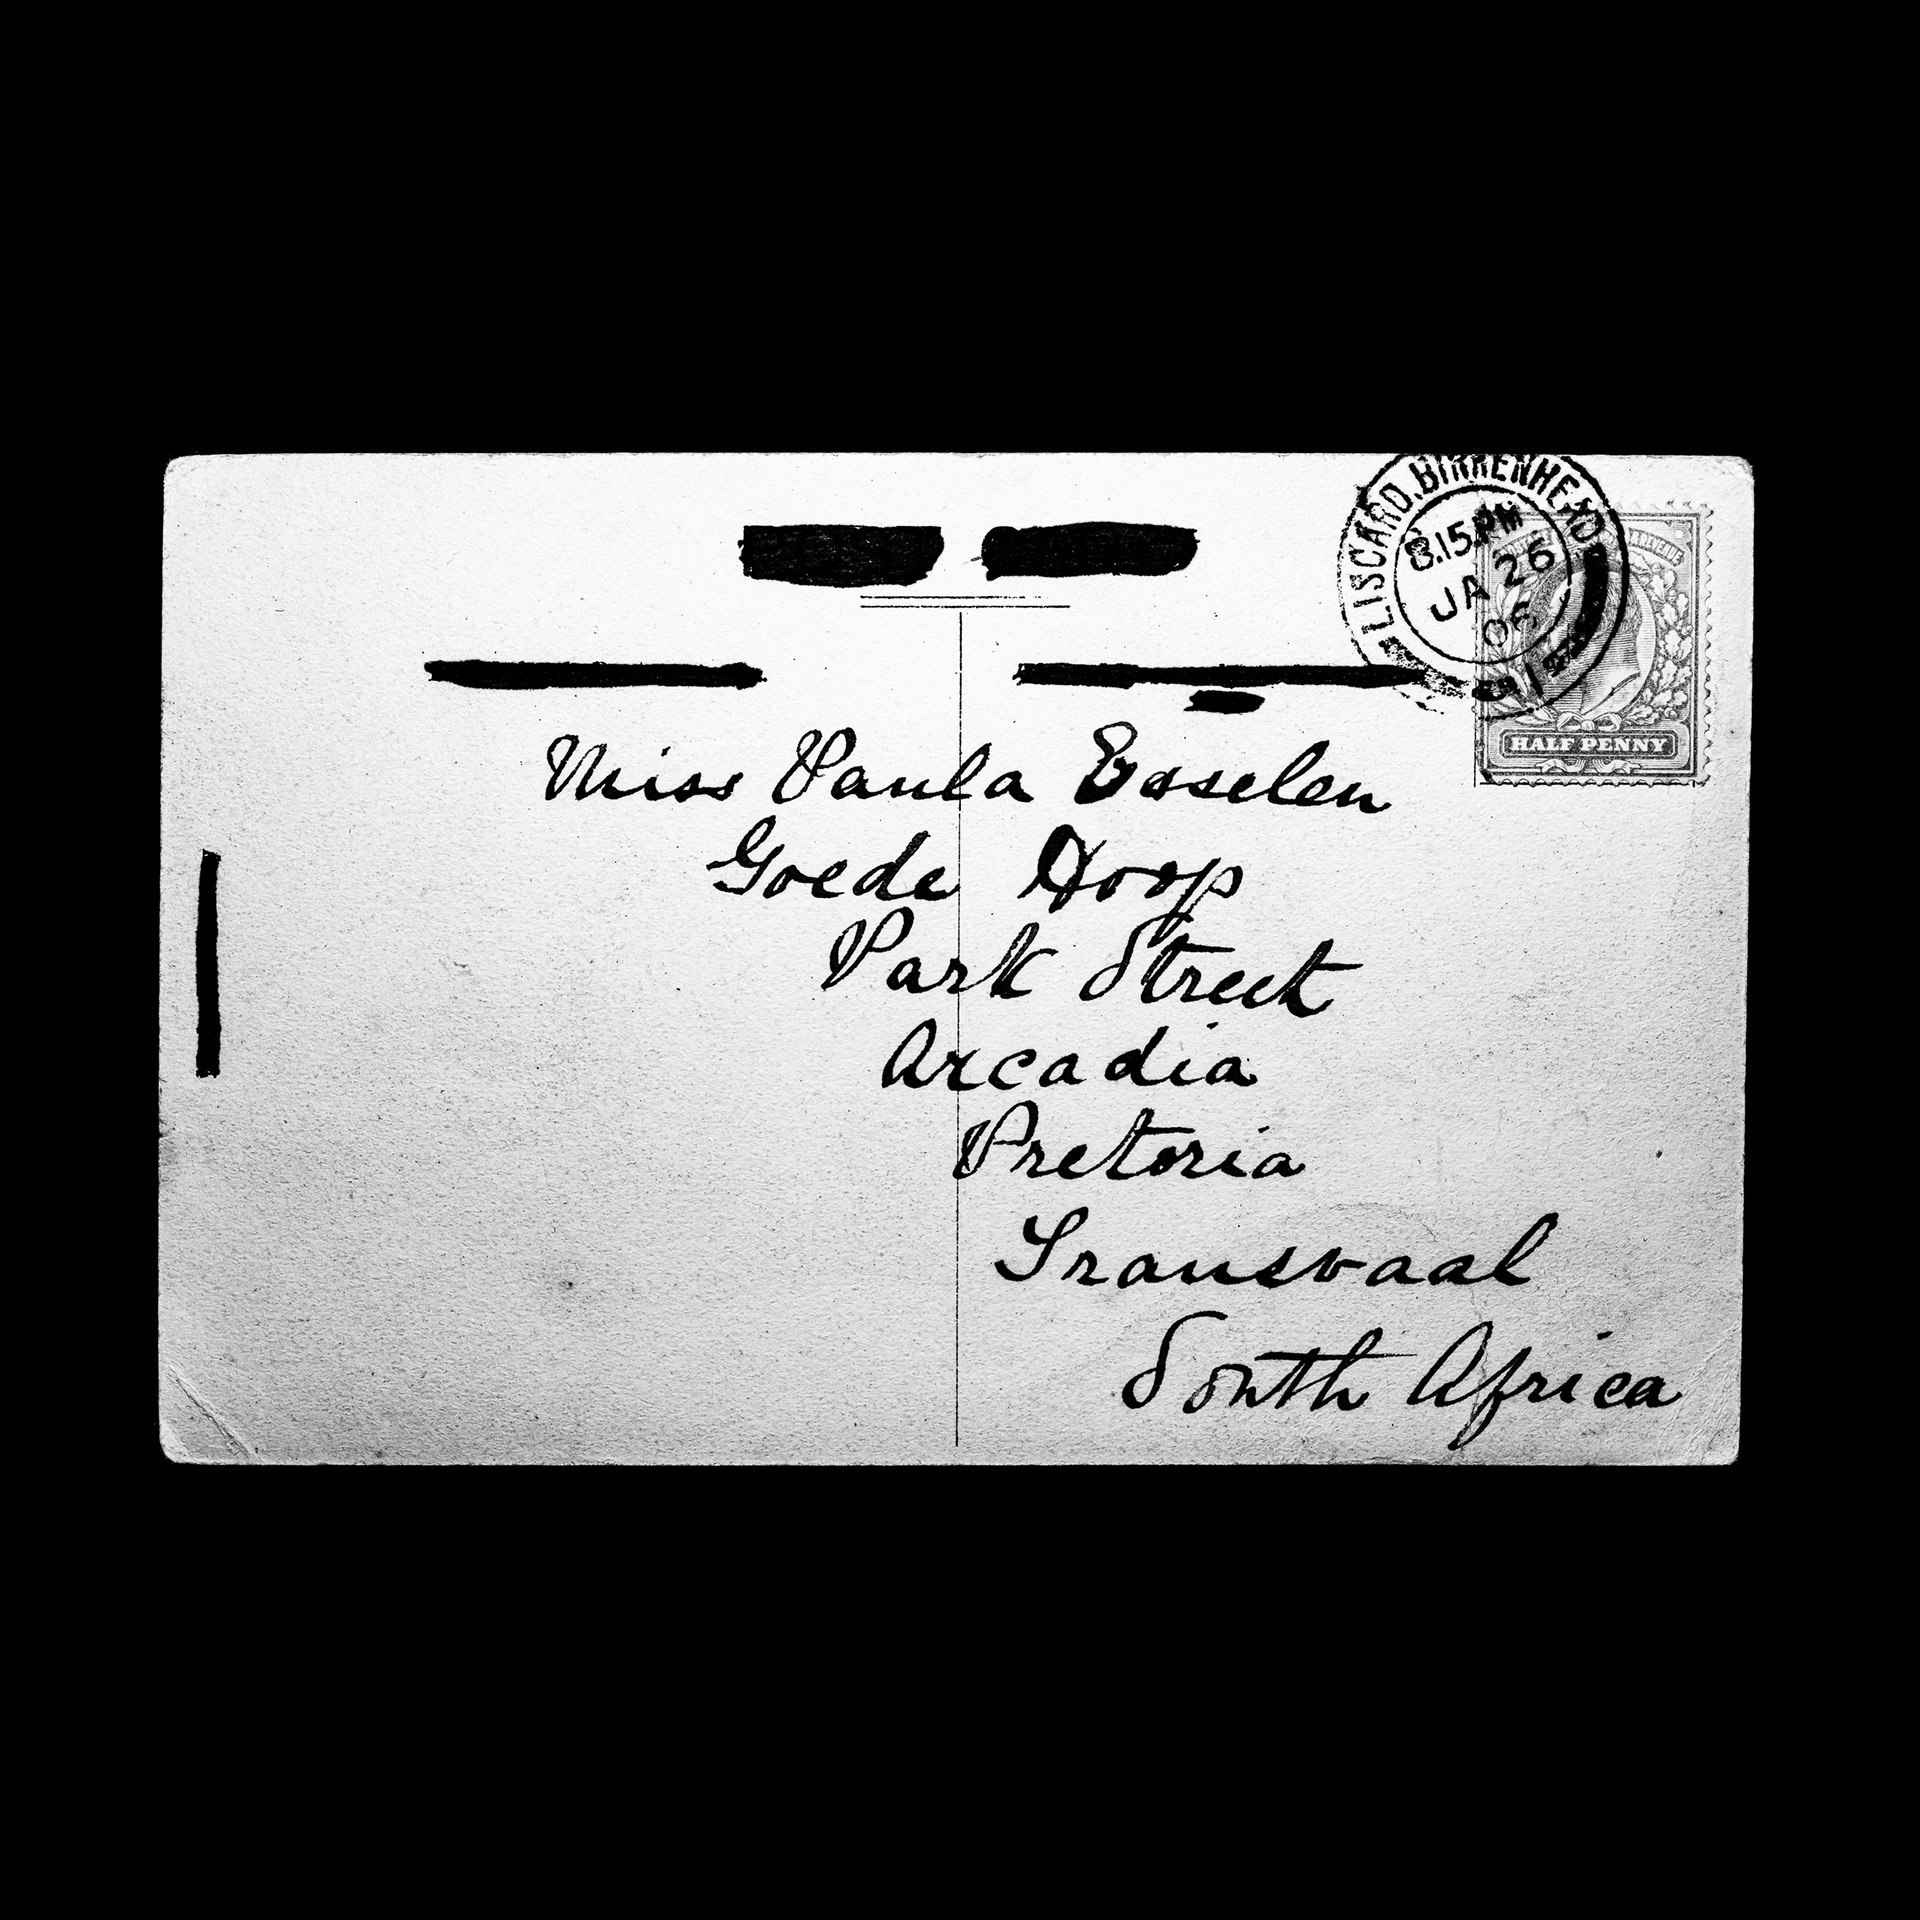 LISCARD. BIRKENHEAD
8.15 PM
JA 26
06
HALF PENNY
Miss Paula Esselen
Goede Hoop
Park Street
Arcadia
Pretoria
Transvaal
South Africa